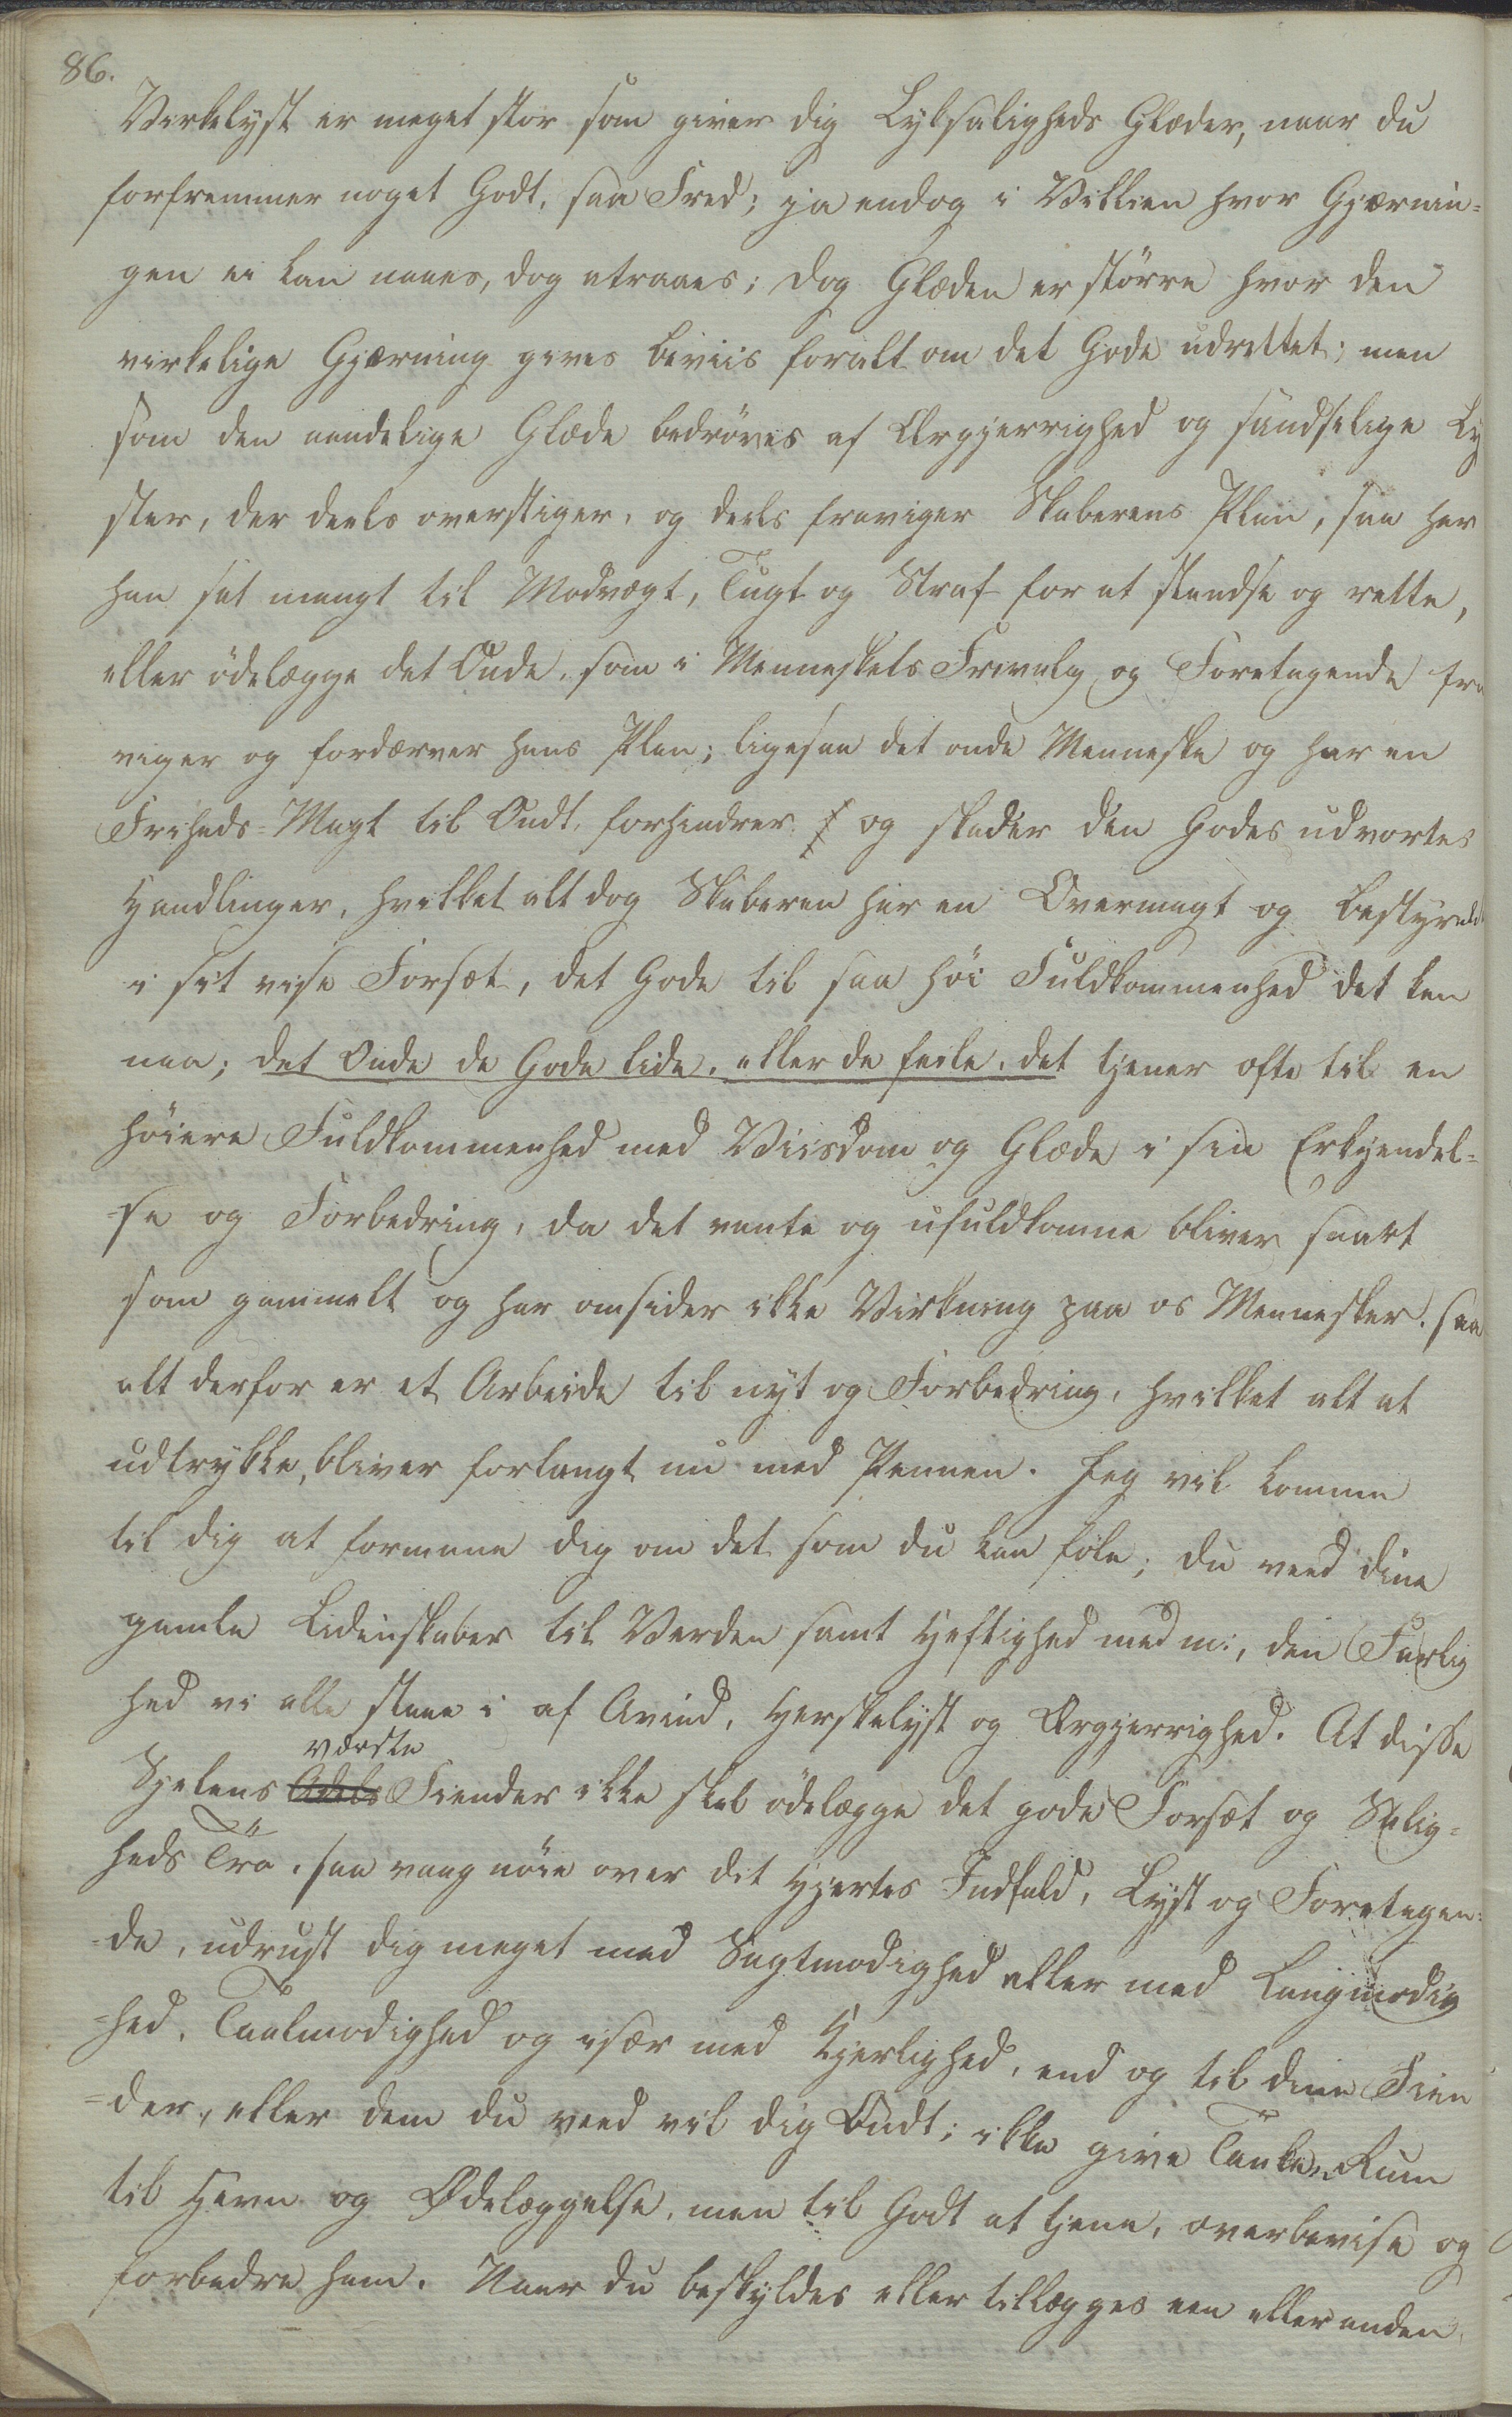 86.
Virkelyst er meget stor som giver dig Lyksaligheds Glæder, naar du
forfremmer noget Godt, saa Fred; ja endog i Villien hvor Gjærnin-
gen ei kan naaes, dog attraaes; dog Glæden er större hvor den
virkelige Gjærning gives Beviis foralt om det Gode udrettet; men
som den aandelige Glæde bedröves af Ærgjerrighed og sandselige Ly
ster, der deels overstiger, og deels fraviger Skaberens Plan, saa har
han sat mangt til Modvægt, Tugt og Straf for at standse og rette,
eller ödelægge det Onde, som i Menneskets Frivalg og Foretagende fra
viger og fordærver hans Plan; ligesaa det onde Menneske og har en
Friheds-Magt til Ondt, forhindrer og skader den Godes udvortes
Handlinger, hvilket alt dog Skaberen har en Overmagt og bestyrelse
i sit vise Forsæt, det Gode til saa höi Fuldkommenhed det kan
naa; det Onde de Gode lide, eller de feile, det tjener ofte til en
höiere Fuldkommenhed med Viisdom og Glæde i sin Erkjendel-
-se og Forbedring, da det vante og ufuldkomne bliver snart
som gammelt og har omsider ikke Virkning paa os Mennesker, saa
alt derfor er et Arbeide til nyt og Forbedring, hvilket alt at
udtrykke, bliver forlangt nu med Pennen. Jeg vil komme
til dig at formane dig om det som du kan föle; du veed dine
gamle Lidenskaber til Verden samt Heftighed med m:, den Farlig
hed vi alle staae i af Avind, Herskelyst og Ærgjerrighed. At disse
værste
Sjelens Adels Fiender ikke skal ödelægge det gode Forsæt og Salig-
heds Tro, saa vaag nöie over dit Hjertes Indfald, Lyst og Foretagen-
-de, udrust dig meget med Sagtmodighed eller med Langmodig
-hed, Taalmodighed og især med Kjerlighed, end og til dine Fien
-der, eller dem du veed vil dig Ondt; ikke give Tanken Rum
til Hevn og Ødelæggelse, men til Godt at tjene, overbevise og
forbedre ham. Naar du beskyldes eller tillægges een eller anden